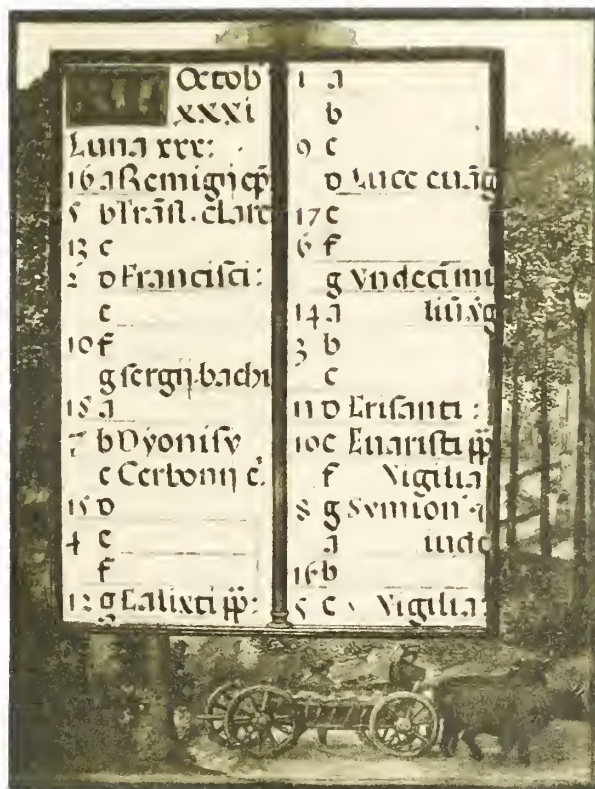 Octob
xxxi
Luna xxx:
16 a Remigij ep̄
5 b Trāsl. clare
13 c
2 d Francisci:
e
10 f
g sergij. bachi
18 a
7 b Dyonisy
c Cerbonij c.
15 d
4 e
f
12 g Calixti pp̄:
1 a
b
9 c
d Luce euāg
17 e
6 f
g Vndecī mi
14 a liū v̄g
3 b
c
11 d Crisanti :
10 e Euaristi pp̄
f Vigilia
8 g Symon' ⁊
a iude
16 b
5 c Vigilia: